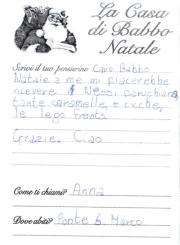 La Casa
di Babbo
Natale
Scrivi il tuo pensierino Caro Babbo
Natale a me mi piacerebbe
ricevere i Nessi paruchiera,
tante caramelle, e cicche,
le lego frends
Grazie. Ciao
Come ti chiami? Anna
Dove abiti? Ponte S. Marco